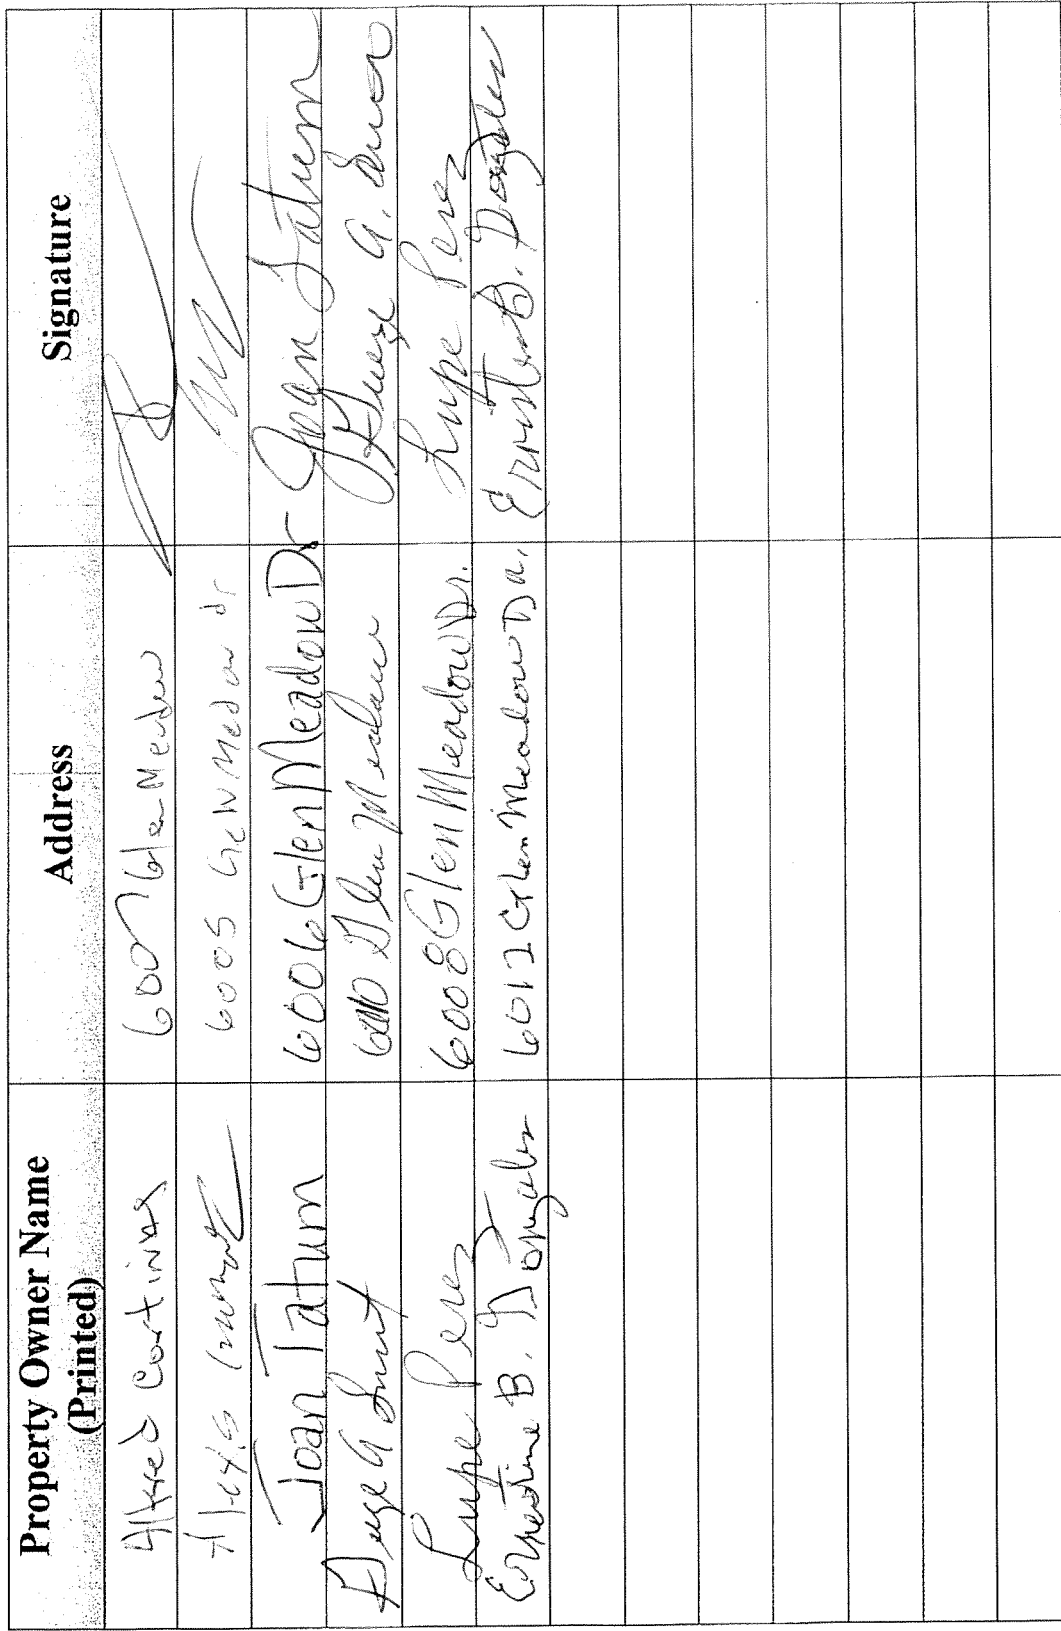 Property Owner Name
(Printed)
Address
Signature
Alfred Cortinas
6007 Glen Meadow
Alexis
6005 Glen Meadow dr
Joan Tatum
6006 Glen Meadow Dr
Joan Tatum
Glen Meadow
A.
Lupe Perez
6008 Glen Meadow Dr.
Lupe Perez
Ernestine B. Gonzales
6012 Glen Meadow Dr.
B. Gonzales